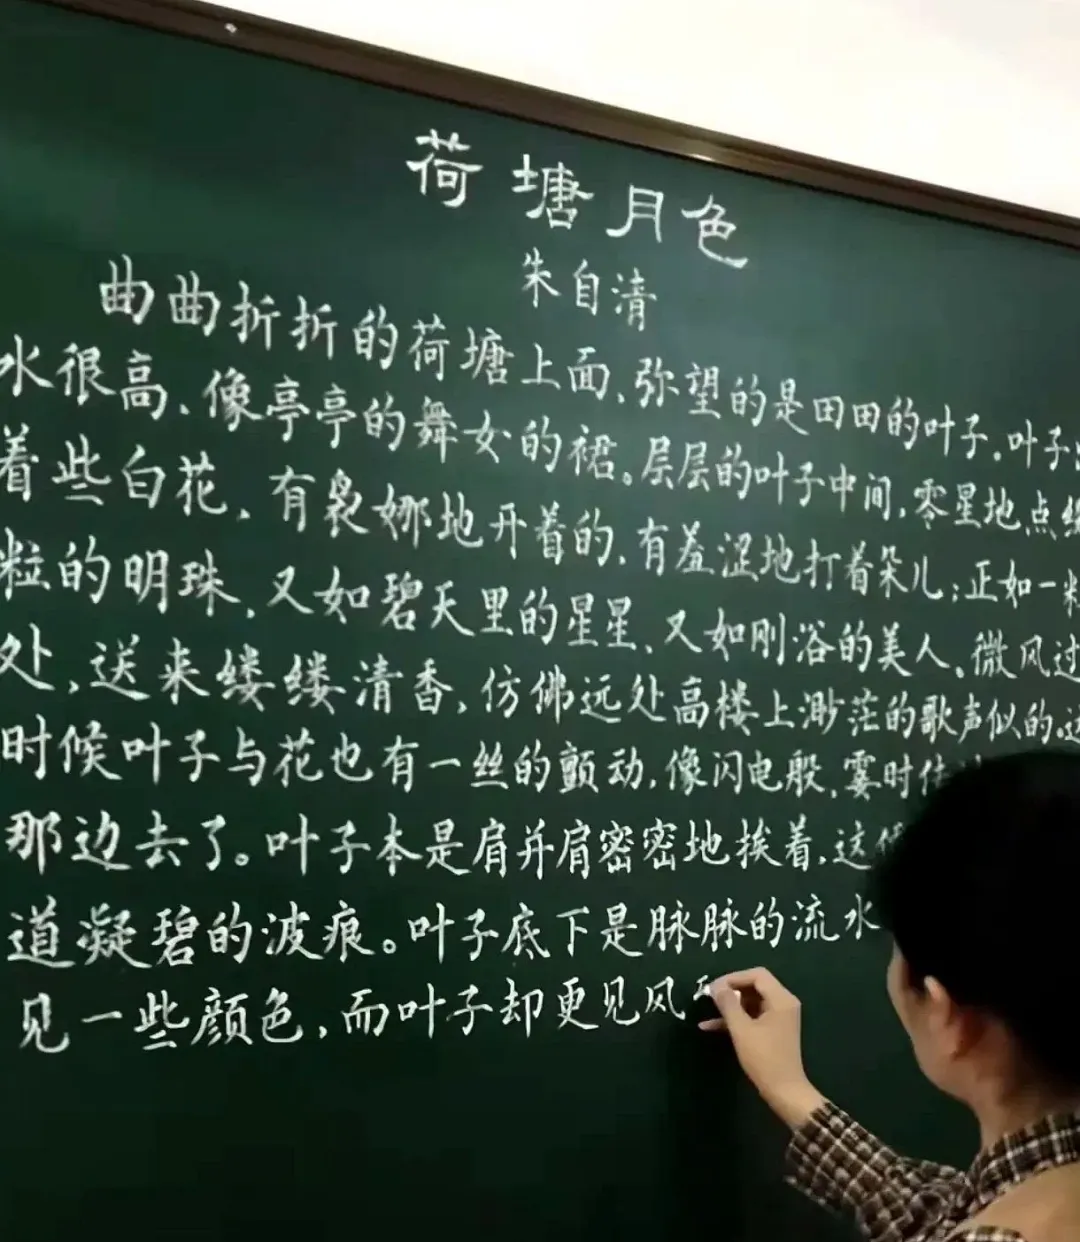 荷塘月色
朱自清
曲曲折折的荷塘上面、弥望的是田田的叶子.叶子
水很高、像亭亭的舞女的裙。层层的叶子中间,零星地点
着些白花,有袅娜地开着的,有羞涩地打着朵儿;正如一
粒的明珠,又如碧天里的星星、又如刚浴的美人。微风过
处,送来缕缕清香,仿佛远处高楼上渺茫的歌声似的。
时候叶子与花也有一丝的颤动,像闪电般,霎时
那边去了。叶子本是肩并肩密密地挨着,这
道凝碧的波痕。叶子底下是脉脉的流水
见一些颜色,而叶子却更见风